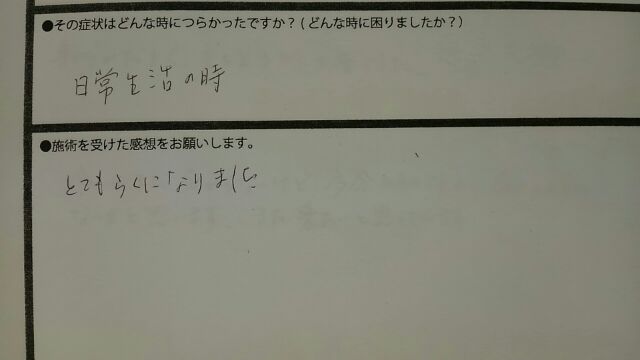 ●その症状はどんな時につらかったですか？(どんな時に困りましたか？)
日常生活の時
●施術を受けた感想をお願いします。
とてもらくになりました